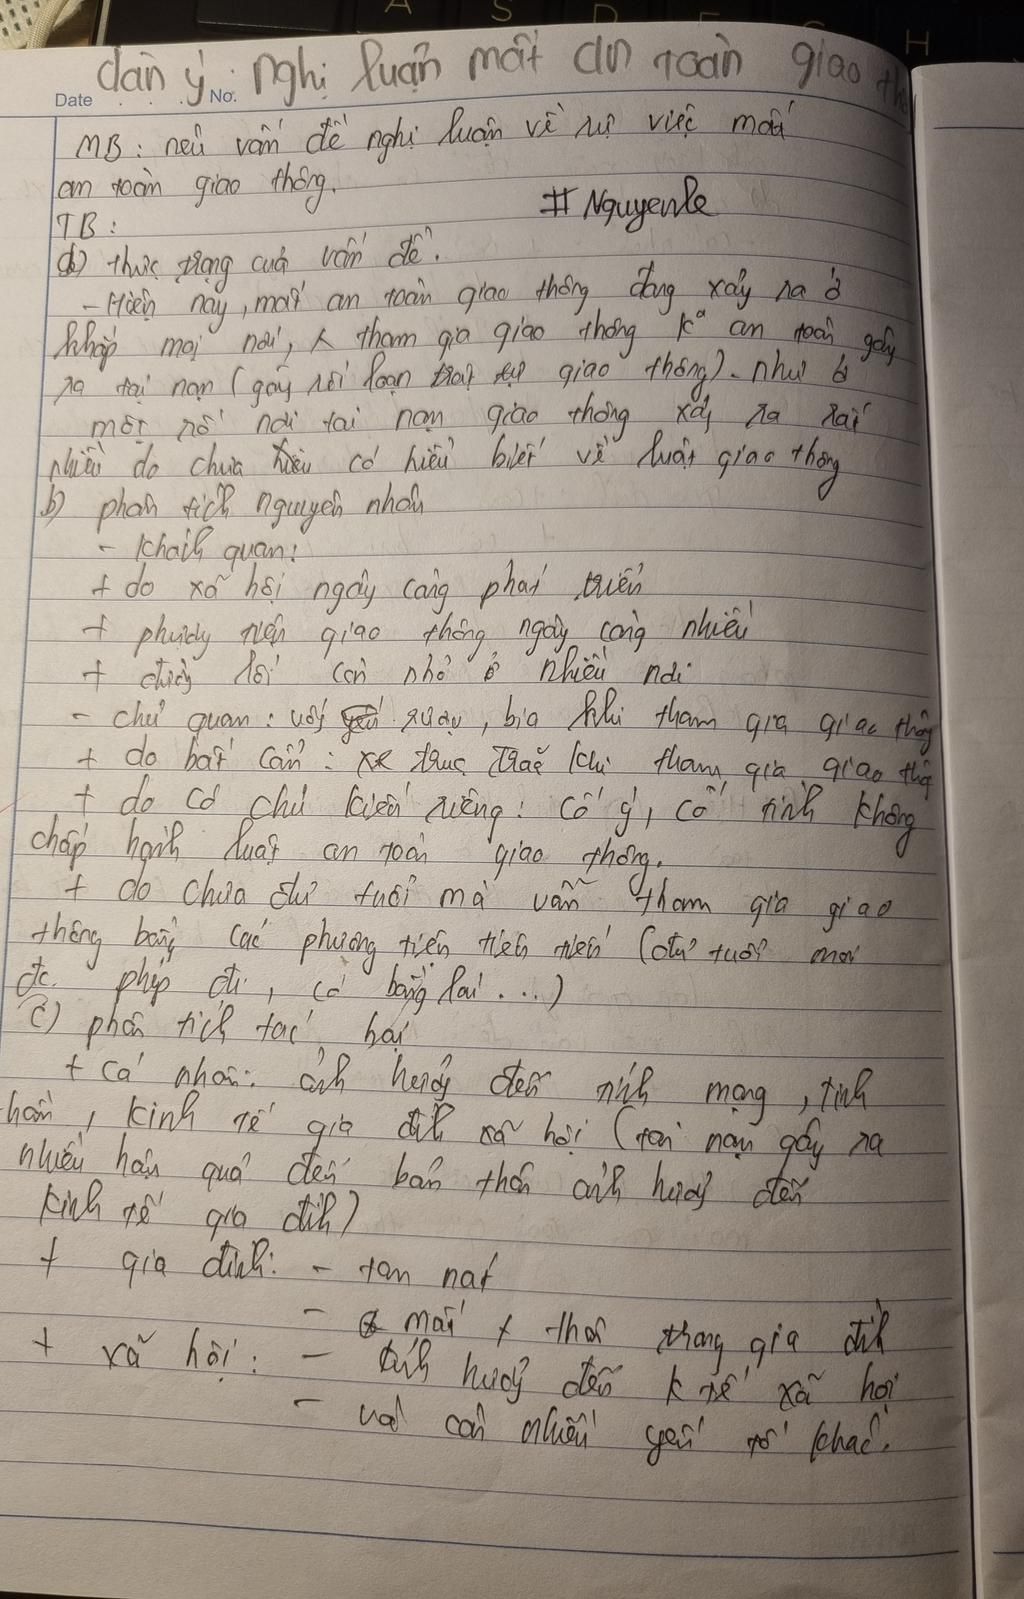 dàn ý: Nghị luận mất an toàn giao
Date . . . No.
MB: nêu vấn đề nghị luận về sự việc mất
an toàn giao thông.
#Nguyenle
TB:
a) thực trạng của vấn đề.
- Hiện nay, mất an toàn giao thông đang xảy ra ở
khắp mọi nơi, tham gia giao thông k° an toàn gây
ra tai nạn (gây rối loạn trật tự giao thông). như ở
một số nơi tai nạn giao thông xảy ra rất
nhiều do chưa có hiểu biết về luật giao thông
b) phân tích nguyên nhân
- Khách quan:
+ do xã hội ngày càng phát triển
+ phương tiện giao thông ngày càng nhiều
+ đường lối còn nhỏ ở nhiều nơi
- chủ quan: uống rượu, bia khi tham gia giao thông
+ do bất cẩn: xe trục trặc khi tham gia giao thg
+ do có chủ kiến riêng: cố ý, cố tình không
chấp hành luật an toàn giao thông.
+ do chưa đủ tuổi mà vẫn tham gia giao
thông bằng các phương tiện tiên tiến (đủ tuổi mới
đc phép đi, có bằng lái...)
c) phân tích tác hại
+ Cá nhân: ảnh hưởng đến tính mạng, tinh
thần, kinh tế gia đình xã hội (tai nạn gây ra
nhiều hậu quả đến bản thân ảnh hưởng đến
kinh tế gia đình)
+ gia đình: - tan nát
- mất thân trong gia đình
+ xã hội: - ảnh hưởng đến k tế xã hội
- và còn nhiều yếu tố khác.